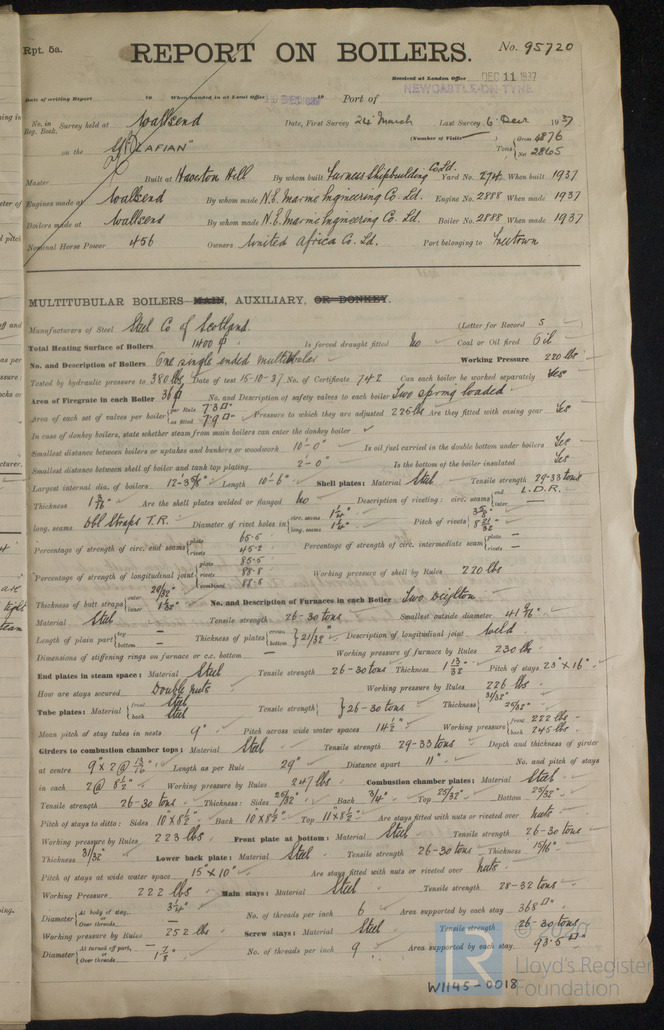 Rpt. 5a.
REPORT ON BOILERS.
No. 95720
Received at London Office DEC 11 1937
NEWCASTLE-ON-TYNE
Date of writing Report 19 When handed in at Local Office 19 Port of
No. in Reg. Book. Survey held at Wallsend Date, First Survey 24 March Last Survey 6 Decr 1937
(Number of Visits )
on the "LAFIAN" Tons Gross 4876 Net 2865
Master Built at Haverton Hill By whom built Furness Shipbuilding Co. Ltd. Yard No. 274 When built 1937
Engines made at Wallsend By whom made N.E. Marine Engineering Co. Ltd. Engine No. 2888 When made 1937
Boilers made at Wallsend By whom made N.E. Marine Engineering Co. Ltd. Boiler No. 2888 When made 1937
Nominal Horse Power 456 Owners United Africa Co. Ld. Port belonging to Freetown
MULTITUBULAR BOILERS MAIN, AUXILIARY, OR DONKEY.
Manufacturers of Steel Steel Co of Scotland. (Letter for Record S
Total Heating Surface of Boilers 1400 Is forced draught fitted No Coal or Oil fired Oil
No. and Description of Boilers One single ended multitubular Working Pressure 220 lbs
Tested by hydraulic pressure to 380 lbs Date of test 15-10-37 No. of Certificate 742 Can each boiler be worked separately Yes
Area of Firegrate in each Boiler 36 No. and Description of safety valves to each boiler Two spring loaded
Area of each set of valves per boiler per Rule 7.3 as fitted 7.9 Pressure to which they are adjusted 225 lb Are they fitted with easing gear Yes
In case of donkey boilers, state whether steam from main boilers can enter the donkey boiler
Smallest distance between boilers or uptakes and bunkers or woodwork 10'-0" Is oil fuel carried in the double bottom under boilers Yes
Smallest distance between shell of boiler and tank top plating 2'-0" Is the bottom of the boiler insulated Yes
Largest internal dia. of boilers Length 10'-6" Shell plates: Material Steel Tensile strength 29-33 tons
Thickness 1 3/16" Are the shell plates welded or flanged No Description of riveting: circ. seams end L.D.R. inter. —
long. seams Dbl Straps T.R. Diameter of rivet holes in circ. seams 1 1/4" long. seams 1 1/4" Pitch of rivets 3 5/8" 8 21/32
Percentage of strength of circ. end seams plate 65.5 rivets 45.2 Percentage of strength of circ. intermediate seam plate — rivets —
Percentage of strength of longitudinal joint plate 85.5 rivets 88.8 combined 88.5 Working pressure of shell by Rules 220 lbs
Thickness of butt straps outer 29/32" inner 1 1/32" No. and Description of Furnaces in each Boiler Two Deighton
Material Steel Tensile strength 26-30 tons Smallest outside diameter 41 9/16"
Length of plain part top — bottom — Thickness of plates crown bottom 21/32" Description of longitudinal joint Weld
Dimensions of stiffening rings on furnace or c.c. bottom — Working pressure of furnace by Rules 230 lbs
End plates in steam space: Material Steel Tensile strength 26-30 tons Thickness 1 13/32 Pitch of stays 23" x 16"
How are stays secured Double nuts Working pressure by Rules 226 lbs
Tube plates: Material front Steel back Steel Tensile strength 26-30 tons Thickness 31/32" 25/32"
Mean pitch of stay tubes in nests 9" Pitch across wide water spaces 14 1/2" Working pressure front 222 lbs back 245 lbs
Girders to combustion chamber tops: Material Steel Tensile strength 29-33 tons Depth and thickness of girder
at centre 9" x 2 @ 13/16" Length as per Rule 29" Distance apart 11" No. and pitch of stays
in each 2 @ 8 1/2" Working pressure by Rules 247 lbs Combustion chamber plates: Material Steel
Tensile strength 26-30 tons Thickness: Sides 25/32" Back 3/4" Top 25/32" Bottom 25/32"
Pitch of stays to ditto: Sides 10"x8 1/2" Back 10"x8 1/2" Top 11"x8 1/2" Are stays fitted with nuts or riveted over Nuts
Working pressure by Rules 223 lbs Front plate at bottom: Material Steel Tensile strength 26-30 tons
Thickness 31/32" Lower back plate: Material Steel Tensile strength 26-30 tons Thickness 15/16"
Pitch of stays at wide water space 15" x 10" Are stays fitted with nuts or riveted over Nuts
Working Pressure 222 lbs Main stays: Material Steel Tensile strength 28-32 tons
Diameter At body of stay, 3 1/4" or Over threads — No. of threads per inch 6 Area supported by each stay 368
Working pressure by Rules 252 lbs Screw stays: Material Steel Tensile strength 26-30 tons
Diameter At turned off part, — or Over threads 1 7/8" No. of threads per inch 9 Area supported by each stay 93.5
W1145-0018
© 2020
LR
Lloyd's Register
Foundation